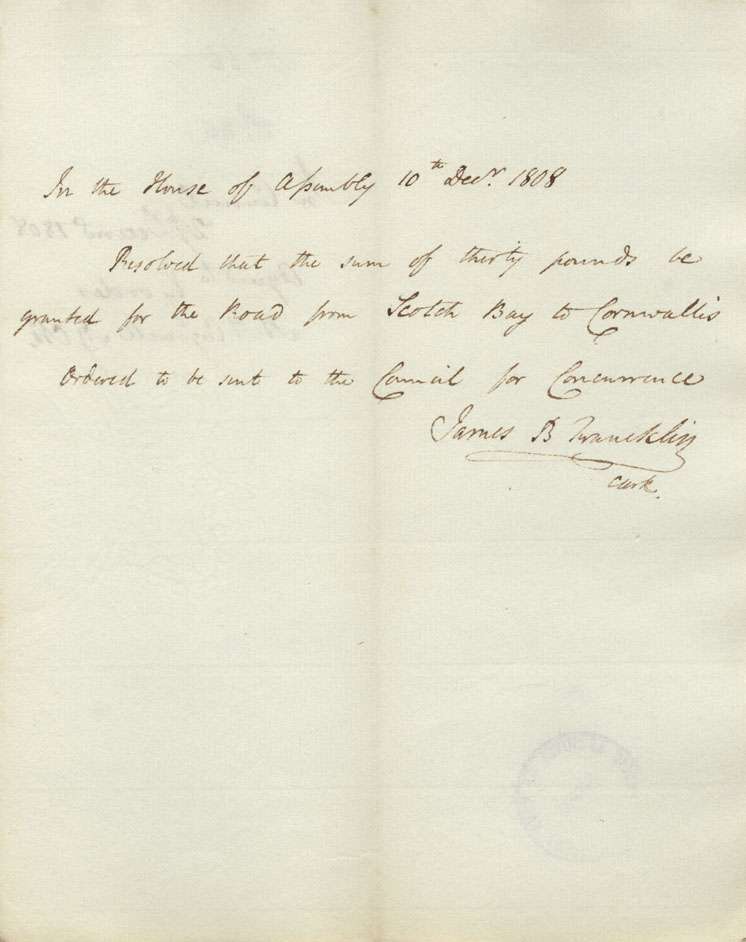 In the House of Assembly 10th Decr. 1808
Resolved that the sum of thirty pounds be
granted for the Road from Scotch Bay to Cornwallis
Ordered to be sent to the Council for Concurrence
James B Francklin
Clerk.